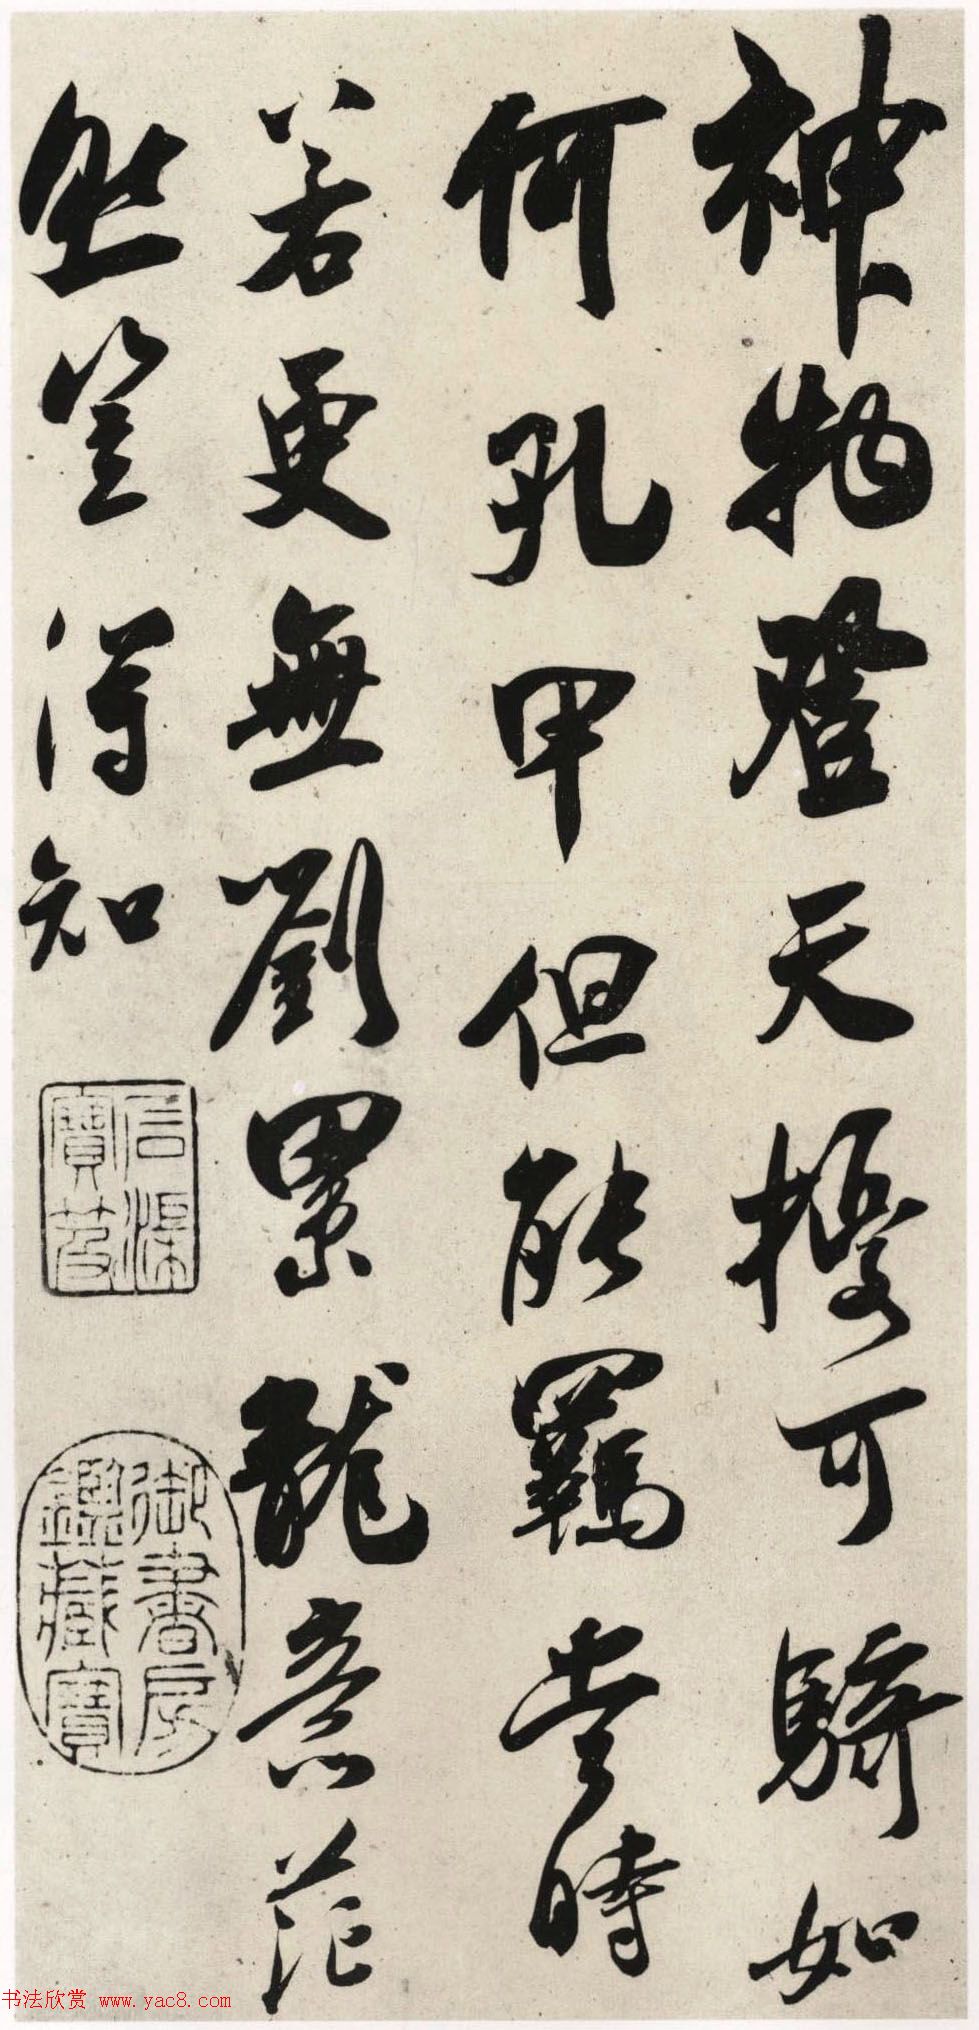 神物登天擾可騎如
何孔甲但能羈當時
若更無劉累龍意茫
然豈得知
信淥
寶芨
御書房
鑑藏寶
书法欣赏 www.yac8.com